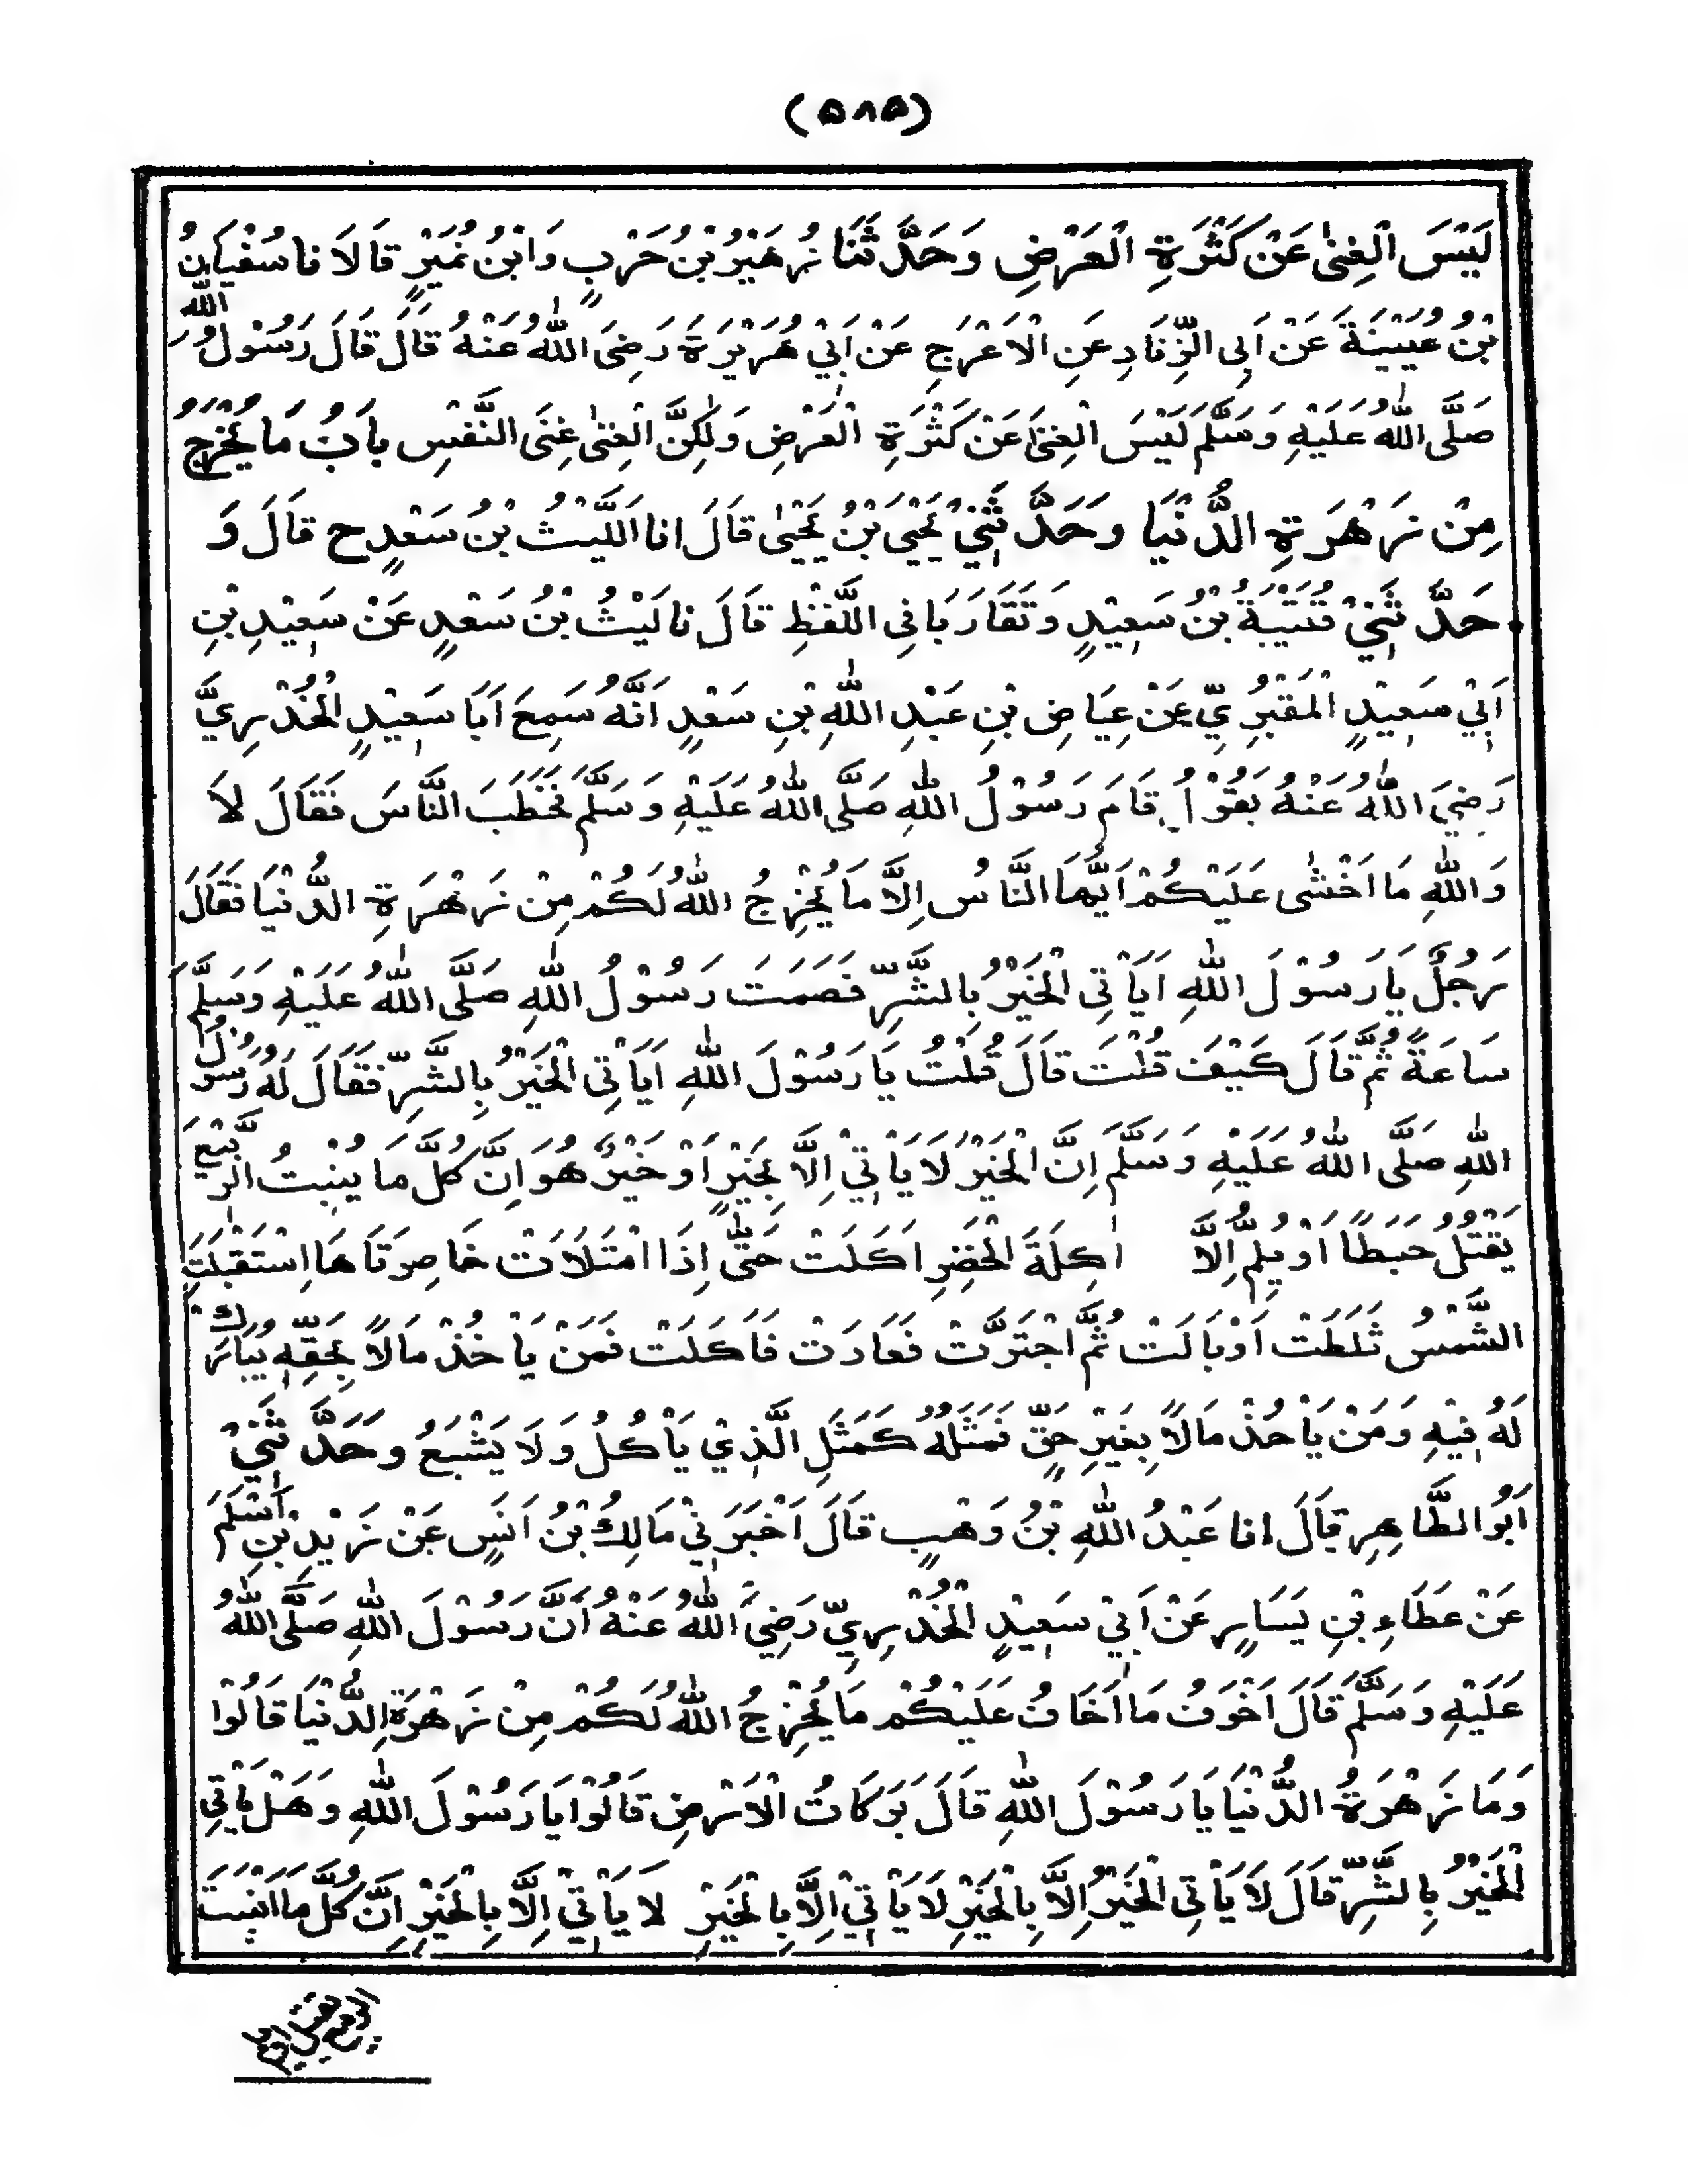 (۵۸۵)
لَيْسَ الْغِنٰى عَنْ كَثْرَةِ الْعَرَضِ وَحَدَّثَنَا زُهَيْرُ بْنُ حَرْبٍ وَابْنُ نُمَيْرٍ قَالَا نا سُفْيَانُ
بْنُ عُيَيْنَةَ عَنْ اَبِى الزِّنَادِ عَنِ الْاَعْرَجِ عَنْ اَبِيْ هُرَيْرَةَ رَضِىَ اللّٰهُ عَنْهُ قَالَ قَالَ رَسُوْلُ اللّٰهِ
صَلَّى اللّٰهُ عَلَيْهِ وَسَلَّمَ لَيْسَ الْغِنٰى عَنْ كَثْرَةِ الْعَرَضِ وَلٰكِنَّ الْغِنٰى غِنَى النَّفْسِ بَابُ مَا يُخْرَجُ
مِنْ زَهْرَةِ الدُّنْيَا وَحَدَّثَنِيْ يَحْيَى بْنُ يَحْيٰى قَالَ انا اللَّيْثُ بْنُ سَعْدٍ ح قَالَ وَ
حَدَّثَنِيْ قُتَيْبَةُ بْنُ سَعِيْدٍ وَتَقَارَبَا فِى اللَّفْظِ قَالَ نا لَيْثُ بْنُ سَعْدٍ عَنْ سَعِيْدِ بْنِ
اَبِيْ سَعِيْدٍ الْمَقْبُرِيِّ عَنْ عِيَاضِ بْنِ عَبْدِ اللّٰهِ بْنِ سَعْدٍ اَنَّهُ سَمِعَ اَبَا سَعِيْدٍ الْخُدْرِيَّ
رَضِيَ اللّٰهُ عَنْهُ يَقُوْلُ قَامَ رَسُوْلُ اللّٰهِ صَلَّى اللّٰهُ عَلَيْهِ وَسَلَّمَ فَخَطَبَ النَّاسَ فَقَالَ لَا
وَاللّٰهِ مَا اَخْشٰى عَلَيْكُمْ اَيُّهَا النَّاسُ اِلَّا مَا يُخْرِجُ اللّٰهُ لَكُمْ مِنْ زَهْرَةِ الدُّنْيَا فَقَالَ
رَجُلٌ يَا رَسُوْلَ اللّٰهِ اَيَاْتِى الْخَيْرُ بِالشَّرِّ فَصَمَتَ رَسُوْلُ اللّٰهِ صَلَّى اللّٰهُ عَلَيْهِ وَسَلَّمَ
سَاعَةً ثُمَّ قَالَ كَيْفَ قُلْتَ قَالَ قُلْتُ يَا رَسُوْلَ اللّٰهِ اَيَاْتِى الْخَيْرُ بِالشَّرِّ فَقَالَ لَهُ رَسُوْلُ
اللّٰهِ صَلَّى اللّٰهُ عَلَيْهِ وَسَلَّمَ اِنَّ الْخَيْرَ لَا يَاْتِيْ اِلَّا بِخَيْرٍ اَوَ خَيْرٌ هُوَ اِنَّ كُلَّ مَا يُنْبِتُ الرَّبِيْعُ
يَقْتُلُ حَبَطًا اَوْ يُلِمُّ اِلَّا اٰكِلَةَ الْخَضِرِ اَكَلَتْ حَتّٰى اِذَا امْتَلَاَتْ خَاصِرَتَاهَا اسْتَقْبَلَتِ
الشَّمْسَ ثَلَطَتْ اَوْ بَالَتْ ثُمَّ اجْتَرَّتْ فَعَادَتْ فَاَكَلَتْ فَمَنْ يَاْخُذْ مَالًا بِحَقِّهٖ يُبَارَكْ
لَهُ فِيْهِ وَمَنْ يَاْخُذْ مَالًا بِغَيْرِ حَقٍّ فَمَثَلُهُ كَمَثَلِ الَّذِيْ يَاْكُلُ وَلَا يَشْبَعُ وَحَدَّثَنِيْ
اَبُو الطَّاهِرِ قَالَ انا عَبْدُ اللّٰهِ بْنُ وَهْبٍ قَالَ اَخْبَرَنِيْ مَالِكُ بْنُ اَنَسٍ عَنْ زَيْدِ بْنِ اَسْلَمَ
عَنْ عَطَاءِ بْنِ يَسَارٍ عَنْ اَبِيْ سَعِيْدٍ الْخُدْرِيِّ رَضِيَ اللّٰهُ عَنْهُ اَنَّ رَسُوْلَ اللّٰهِ صَلَّى اللّٰهُ
عَلَيْهِ وَسَلَّمَ قَالَ اَخْوَفُ مَا اَخَافُ عَلَيْكُمْ مَا يُخْرِجُ اللّٰهُ لَكُمْ مِنْ زَهْرَةِ الدُّنْيَا قَالُوْا
وَمَا زَهْرَةُ الدُّنْيَا يَا رَسُوْلَ اللّٰهِ قَالَ بَرَكَاتُ الْاَرْضِ قَالُوْا يَا رَسُوْلَ اللّٰهِ وَهَلْ يَاْتِى
الْخَيْرُ بِالشَّرِّ قَالَ لَا يَاْتِى الْخَيْرُ اِلَّا بِالْخَيْرِ لَا يَاْتِيْ اِلَّا بِالْخَيْرِ لَا يَاْتِيْ اِلَّا بِالْخَيْرِ اِنَّ كُلَّ مَا اَنْبَتَ